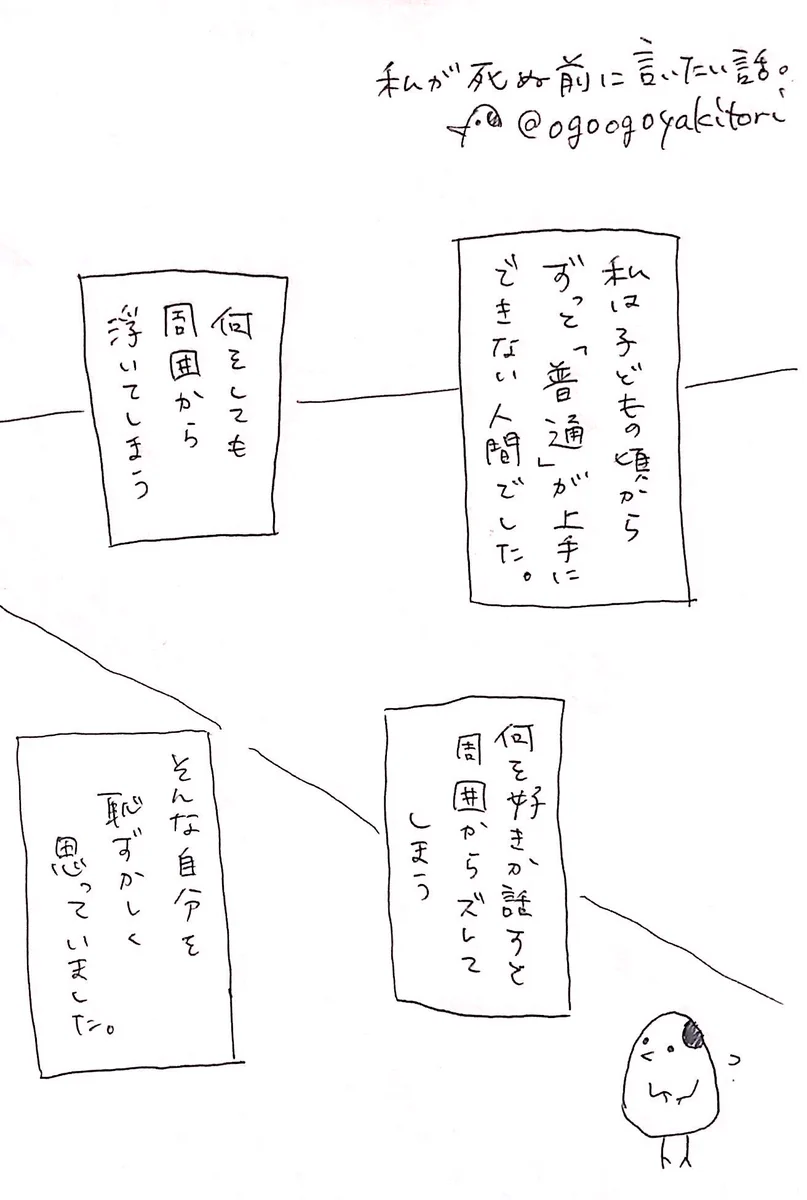 私が死ぬ前に言いたい話。
@ogoogoyakitori
私は子どもの頃から
ずっと「普通」が上手に
できない人間でした。
何をしても
周囲から
浮いてしまう
何を好きか話すと
周囲からズレて
しまう
そんな自分を
恥ずかしく
思っていました。
?